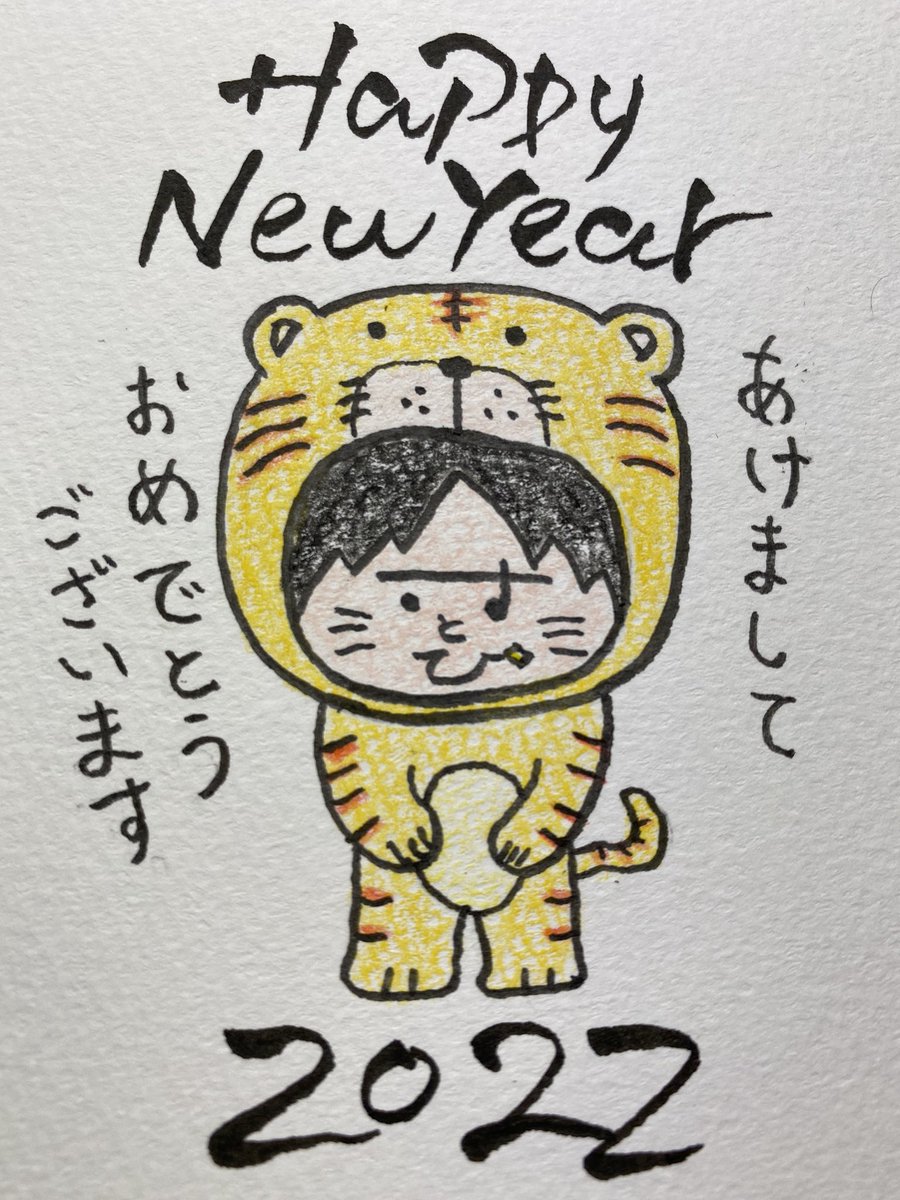 Happy
New Year
あけまして
おめでとう
ございます
2022